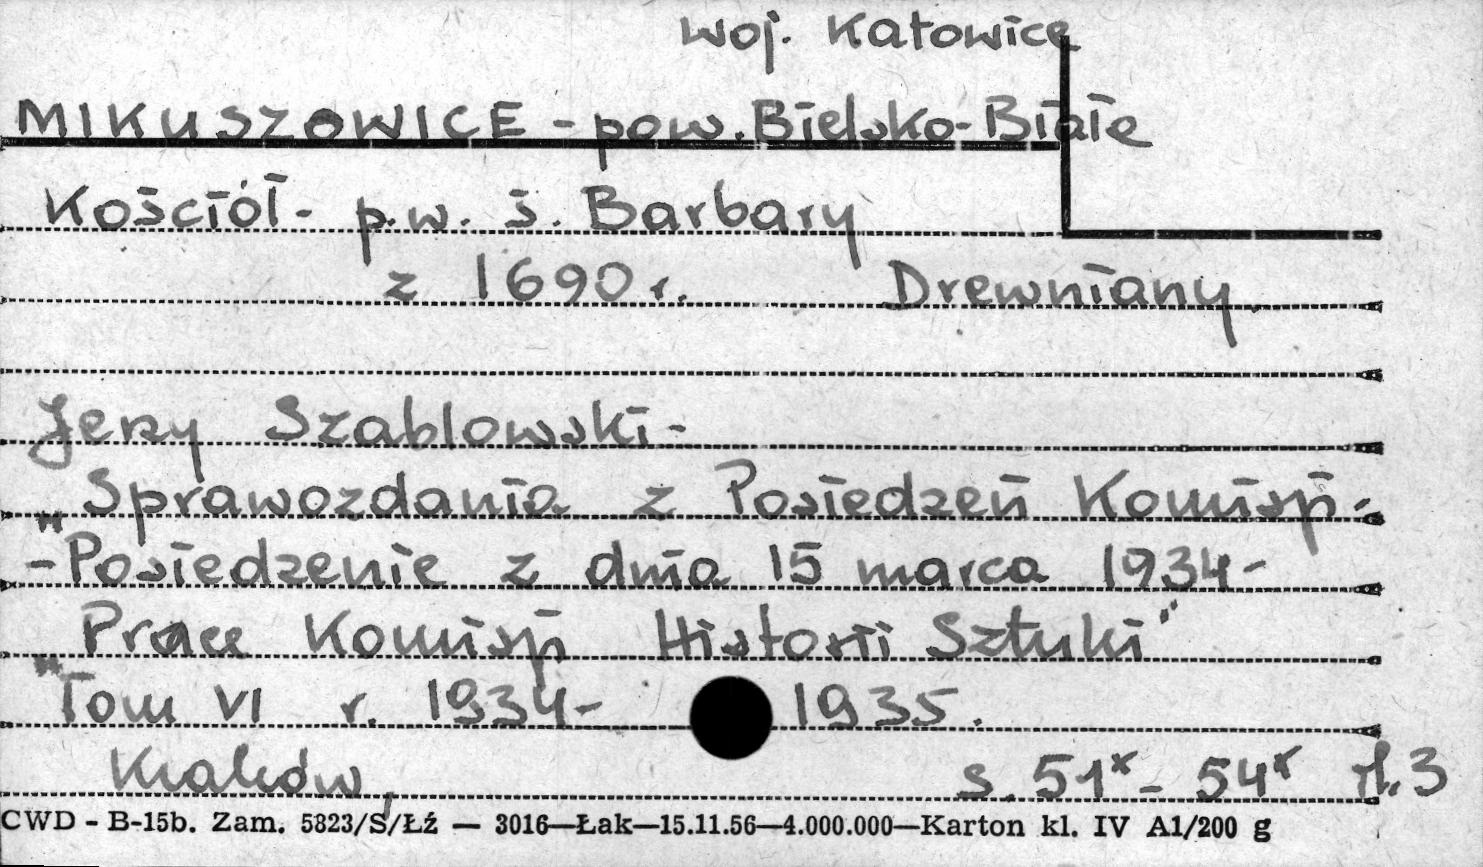 woj. Katowice
MIKUSZOWICE - pow. Bielsko-Białe
Kościół - p.w. ś. Barbary
z 1690 r. Drewniany
Jerzy Szablowski -
Sprawozdania z Posiedzeń Komisji -
- Posiedzenie z dnia 15 marca 1934 -
"Prace Komisji Historii Sztuki"
"Tom VI r. 1934 - 1935.
Kraków, s. 51* - 54* il. 3
CWD - B-15b. Zam. 5823/S/Łź — 3016—Łak—15.11.56—4.000.000—Karton kl. IV A1/200 g